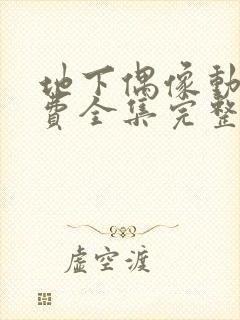 地下偶像動
費全集完整
虛空渡